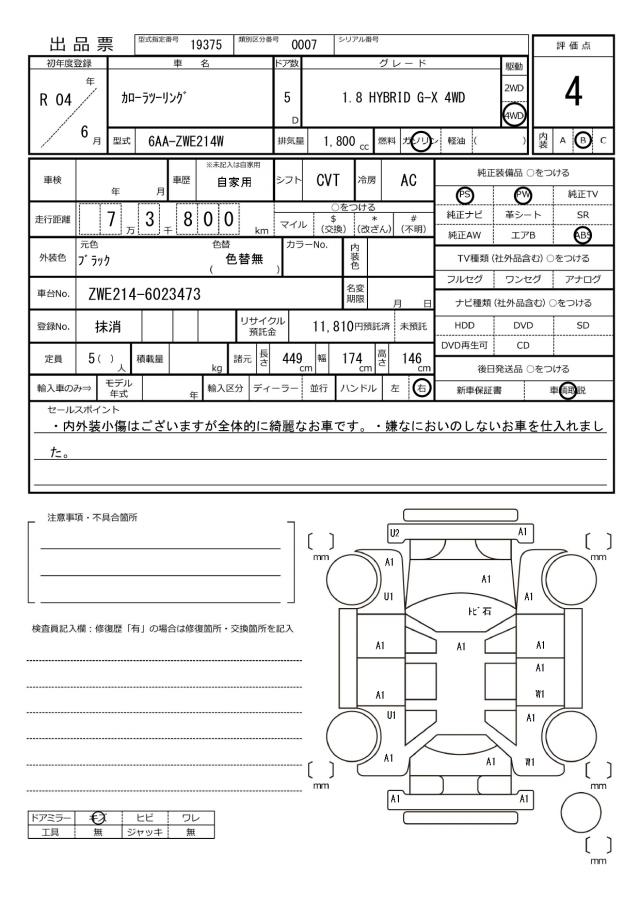 出品票 型式指定番号 19375 類別区分番号 0007 シリアル番号
評価点
4
初年度登録 車 名 ドア数 グレード 駆動
R 04 年 6 月
カローラツーリング 5 D 1.8 HYBRID G-X 4WD
2WD
4WD
型式 6AA-ZWE214W 排気量 1,800 cc 燃料 ガソリン 軽油 ( )
内装 A B C
車検 年 月 車歴 ※未記入は自家用 自家用 シフト CVT 冷房 AC
走行距離 7 万 3 千 8 0 0 km
○をつける
マイル $ (交換) * (改ざん) # (不明)
外装色 元色 ブラック 色替 ( 色替無 ) カラーNo. 内装色
車台No. ZWE214-6023473 名変期限 月 日
登録No. 抹消 リサイクル預託金 11,810円預託済 未預託
定員 5 ( ) 人 積載量 kg 諸元 長さ 449 cm 幅 174 cm 高さ 146 cm
輸入車のみ⇒ モデル年式 年 輸入区分 ディーラー 並行 ハンドル 左 右
純正装備品 ○をつける
PS PW 純正TV
純正ナビ 革シート SR
純正AW エアB ABS
TV種類 (社外品含む) ○をつける
フルセグ ワンセグ アナログ
ナビ種類 (社外品含む) ○をつける
HDD DVD SD
DVD再生可 CD
後日発送品 ○をつける
新車保証書 車輌取説
セールスポイント
・内外装小傷はございますが全体的に綺麗なお車です。・嫌なにおいのしないお車を仕入れまし
た。
注意事項・不具合箇所
検査員記入欄：修復歴「有」の場合は修復箇所・交換箇所を記入
ドアミラー キズ ヒビ ワレ
工具 無 ジャッキ 無
U2 A1
mm mm
A1
A1
U1 A1
トビ石
A1 A1 A1
A1
A1 W1
U1 A1
A1 A1 W1
mm mm
A1 A1
mm